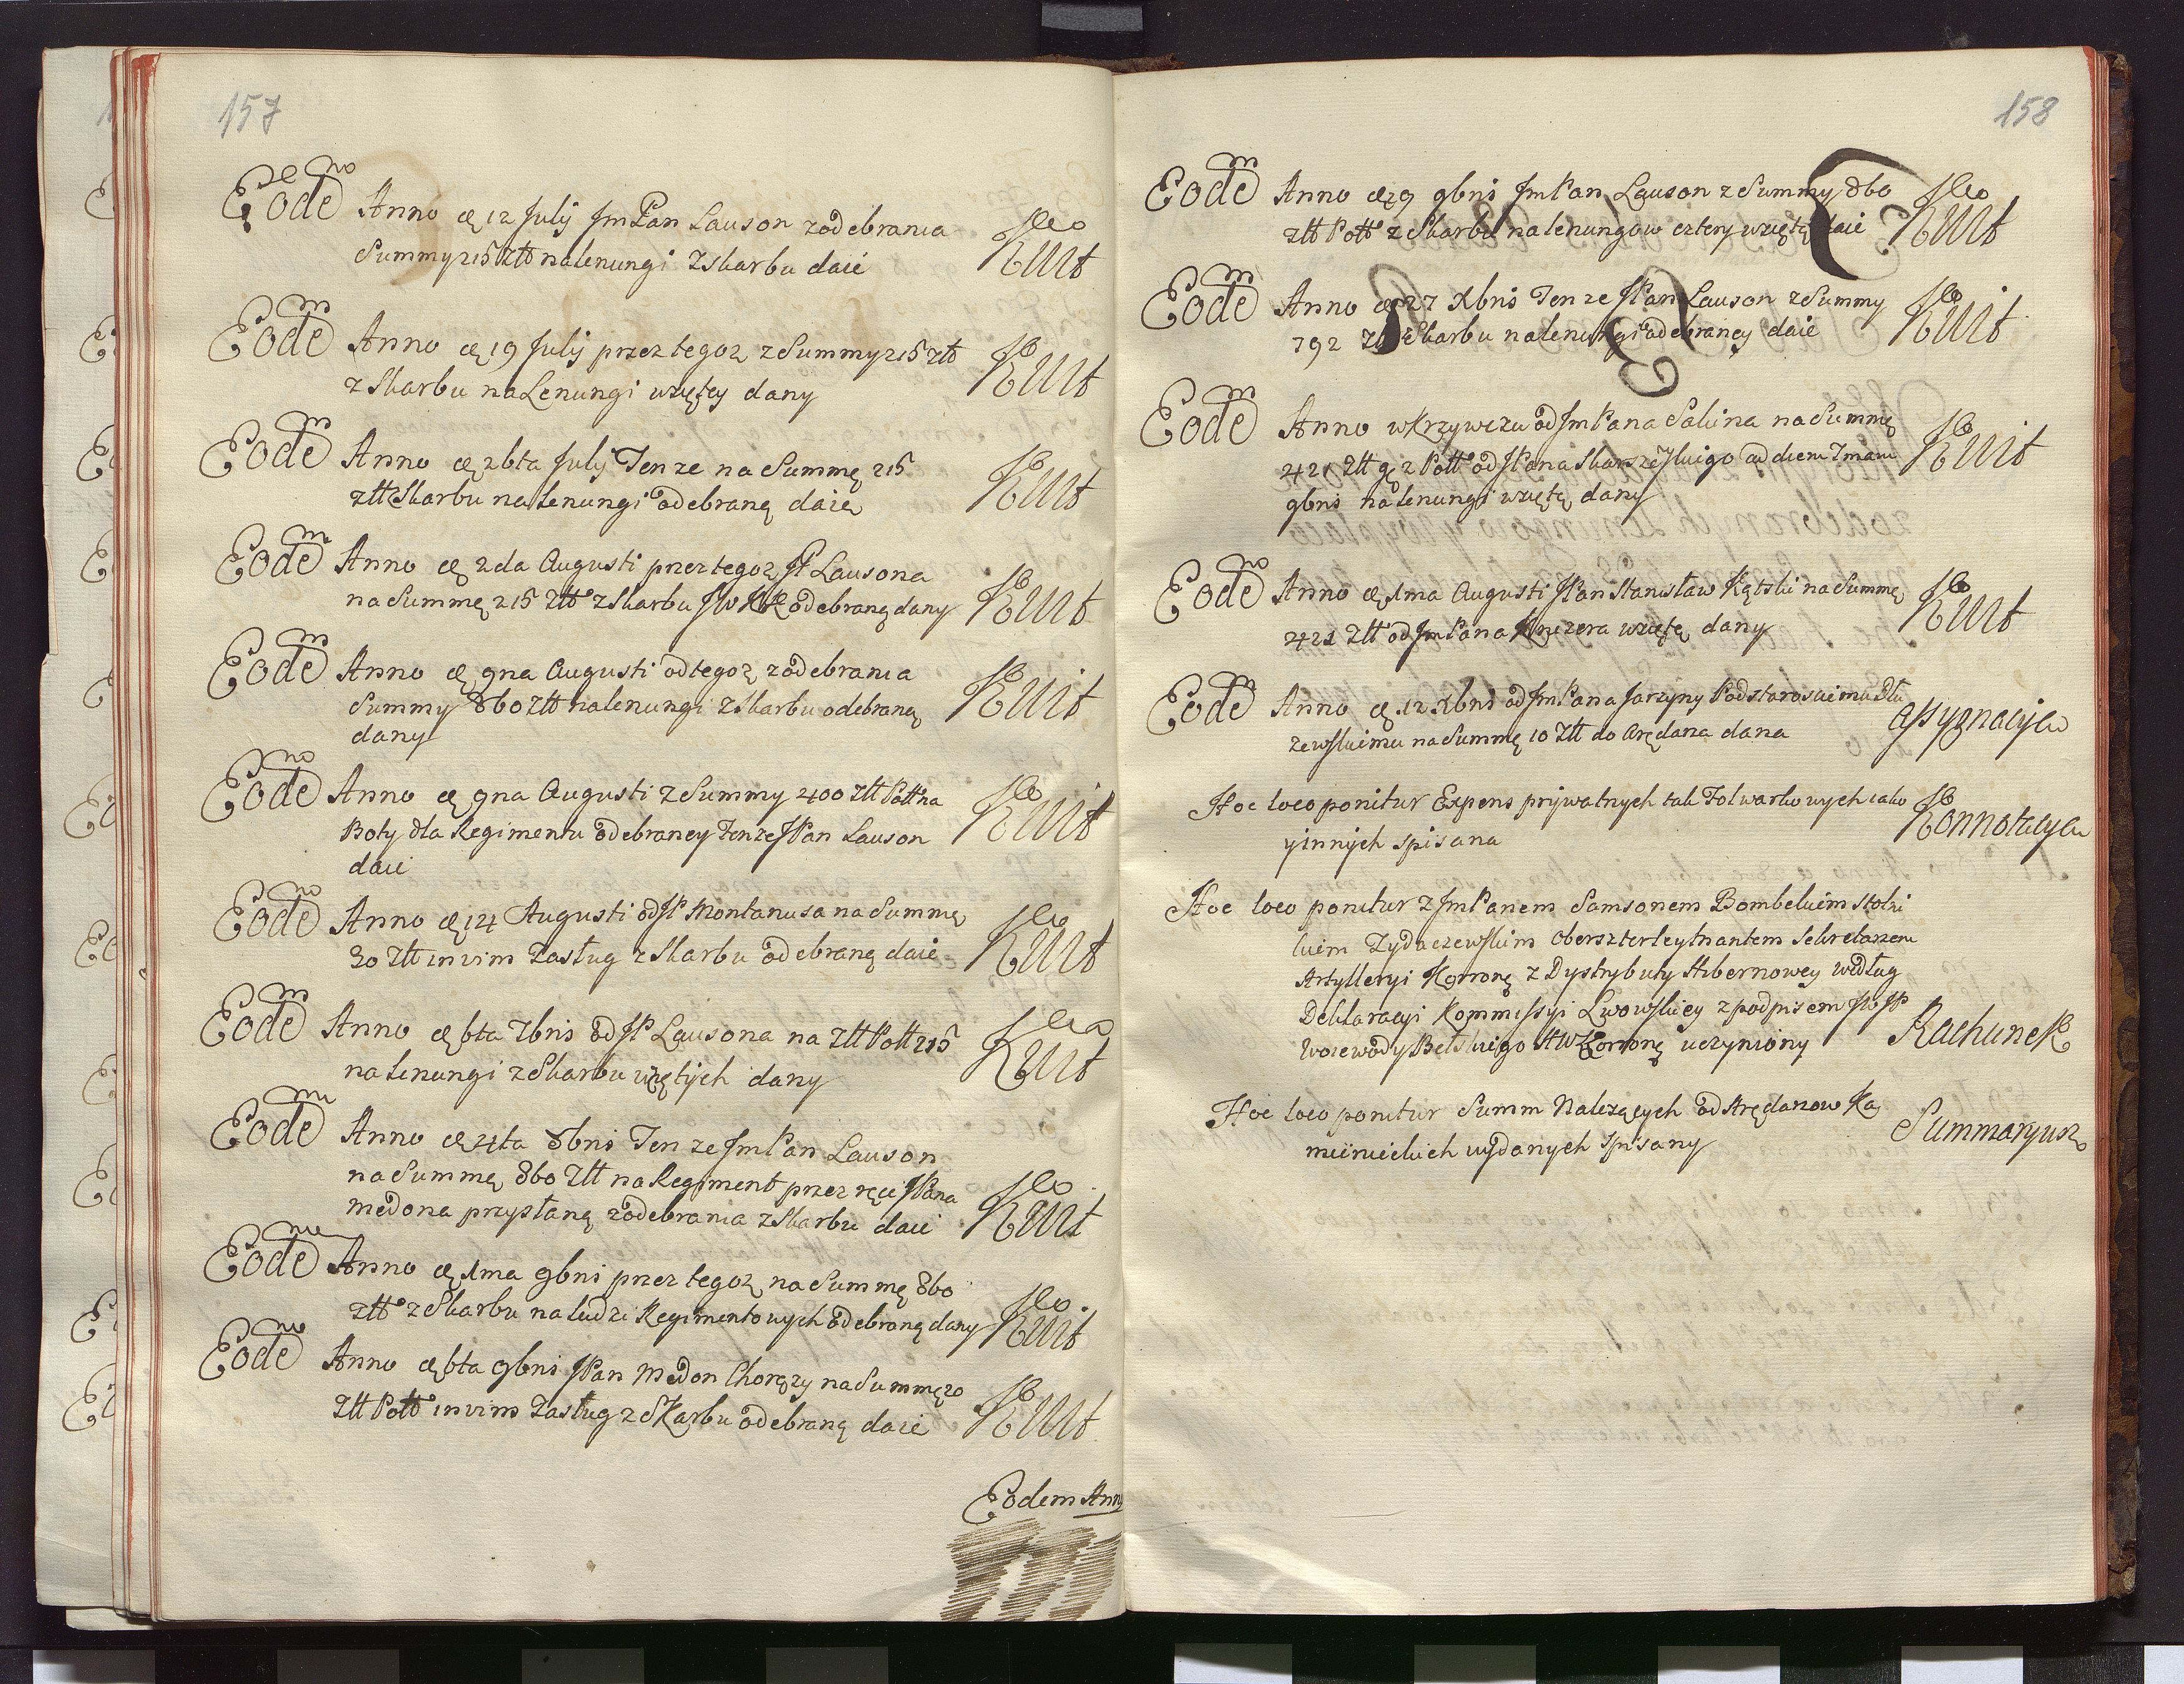 157
Eodem Anno d 12 July Jm Pan Lauson z odebrania
Summy 215 Złł na lenungi z Skarbu daie Kwit
Eodem Anno d 19 July przez tegoz z Summy 215 złł
z Skarbu na Lenungi wziętey dany Kwit
Eodem Anno d 26ta July Tenze na Summę 215
złł z Skarbu na lenungi odebraną daie Kwit
Eodem Anno d 2da Augusti przez tegoz JP Lausona
na Summę 215 Złł z Skarbu odebraną dany Kwit
Eodem Anno d 9na Augusti od tegoz z odebrania
Summy 860 Złł na lenungi z Skarbu odebraną
dany Kwit
Eodem Anno d 9na Augusti z Summy 400 Złł Poll na
Boty dla Regimentu odebraney Tenze JPan Lauson
daie Kwit
Eodem Anno d 14 Augusti od JP Montanusa na Summę
30 Złł in vim Zasług z Skarbu odebraną daie Kwit
Eodem Anno d 6ta 7bris od JP Lausona na Złł Poll 215
na lenungi z Skarbu wziętych dany Kwit
Eodem Anno d 4ta 8bris Ten ze Jm Pan Lauson
na Summę 860 Złł na Regiment przez ręce JPana
Medona przysłaną z odebrania z Skarbu daie Kwit
Eodem Anno d 1ma 9bris przez tegoz na Summę 860
złł z Skarbu na ludzi Regimentowych odebraną dany Kwit
Eodem Anno d 6ta 9bris JPan Medon Chorąży na Summę 20
Złł Poll in vim Zasług z Skarbu odebraną daie Kwit
Eodem Anno
158
Eodem Anno d 29 9bris Jm Pan Lauson z Summy 860
złł Poll z Skarbu na lenungow cztery wziętą daie Kwit
Eodem Anno d 27 Xbris Ten ze JPan Lauson z Summy
792 Zł z Skarbu na lenungi odebraney daie Kwit
Eodem Anno w Krzywczu od Jm Pana Salina na Summę
421 Złł Poll od JPana ad diem 7mam
9bris na lenungi wziętą dany Kwit
Eodem Anno d 1ma Augusti JPan Stanisław Kątski na Summę
421 Złł od Jm Pana wziętą dany Kwit
Eodem Anno d 12 Xbris od Jm Pana Jarzyny Podstarosciemu
zewskiemu na Summę 10 Złł do Arędarza dana Assygnacya
Hoc loco ponitur Expens prywatnych tak Folwarkowych iako
y innych spisana Konnotacya
Hoc loco ponitur z Jm Panem Samsonem Bombekiem Stolni
kiem Zydaczewskim Oberszterleytnantem Sekretarzem
Artylleryi Korronę z Dystrybuty Hibernowey według
Deklaracyi Kommissyi Lwowskiey z podpisem JW JP
Woiewody Bełskiego HW Korronę uczyniony Rachunek
Hoc loco ponitur Summ Należących od Arędarzow Ka
mienieckich wydanych spisany Summaryusz